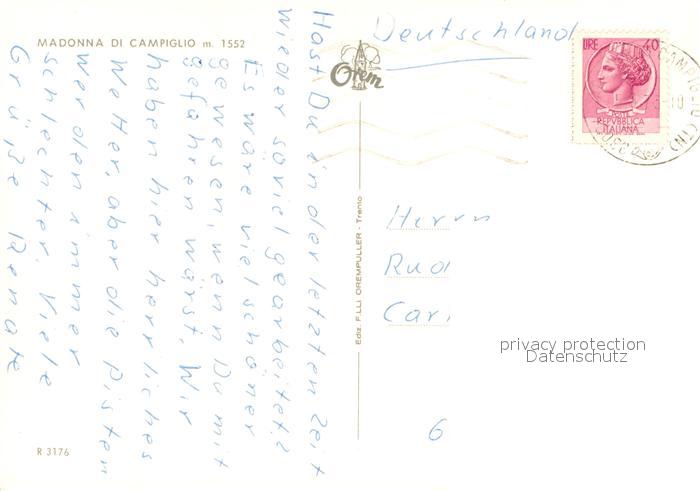 MADONNA DI CAMPIGLIO m. 1552
Hast Du in der letzten Zeit
wieder soviel gearbeitet?
Es wäre viel schöner
gewesen, wenn Du mit
gefahren wärst. Wir
haben hier herrliches
Wetter, aber die Pisten
werden immer
schlechter. Viele
Grüße Renate
R 3176
Orem
Ediz. F.LLI OREMPULLER - Trento
Deutschland
LIRE 40
POSTE
REPVBBLICA
ITALIANA
Herrn
Rud
Cari
6
privacy protection
Datenschutz